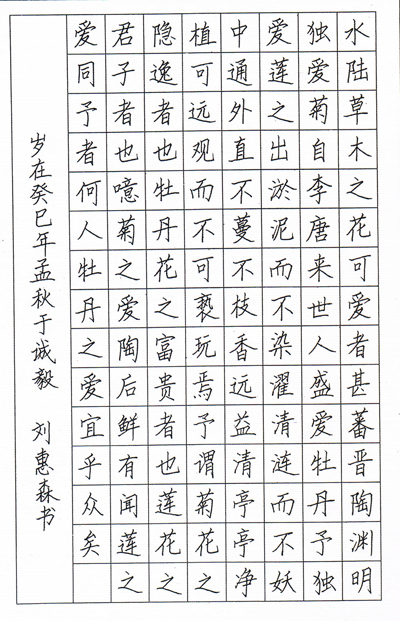 水陆草木之花可爱者甚蕃晋陶渊明
独爱菊自李唐来世人盛爱牡丹予独
爱莲之出淤泥而不染濯清涟而不妖
中通外直不蔓不枝香远益清亭亭净
植可远观而不可亵玩焉予谓菊花之
隐逸者也牡丹花之富贵者也莲花之
君子者也噫菊之爱陶后鲜有闻莲之
爱同予者何人牡丹之爱宜乎众矣
岁在癸巳年孟秋于诚毅 刘惠森书